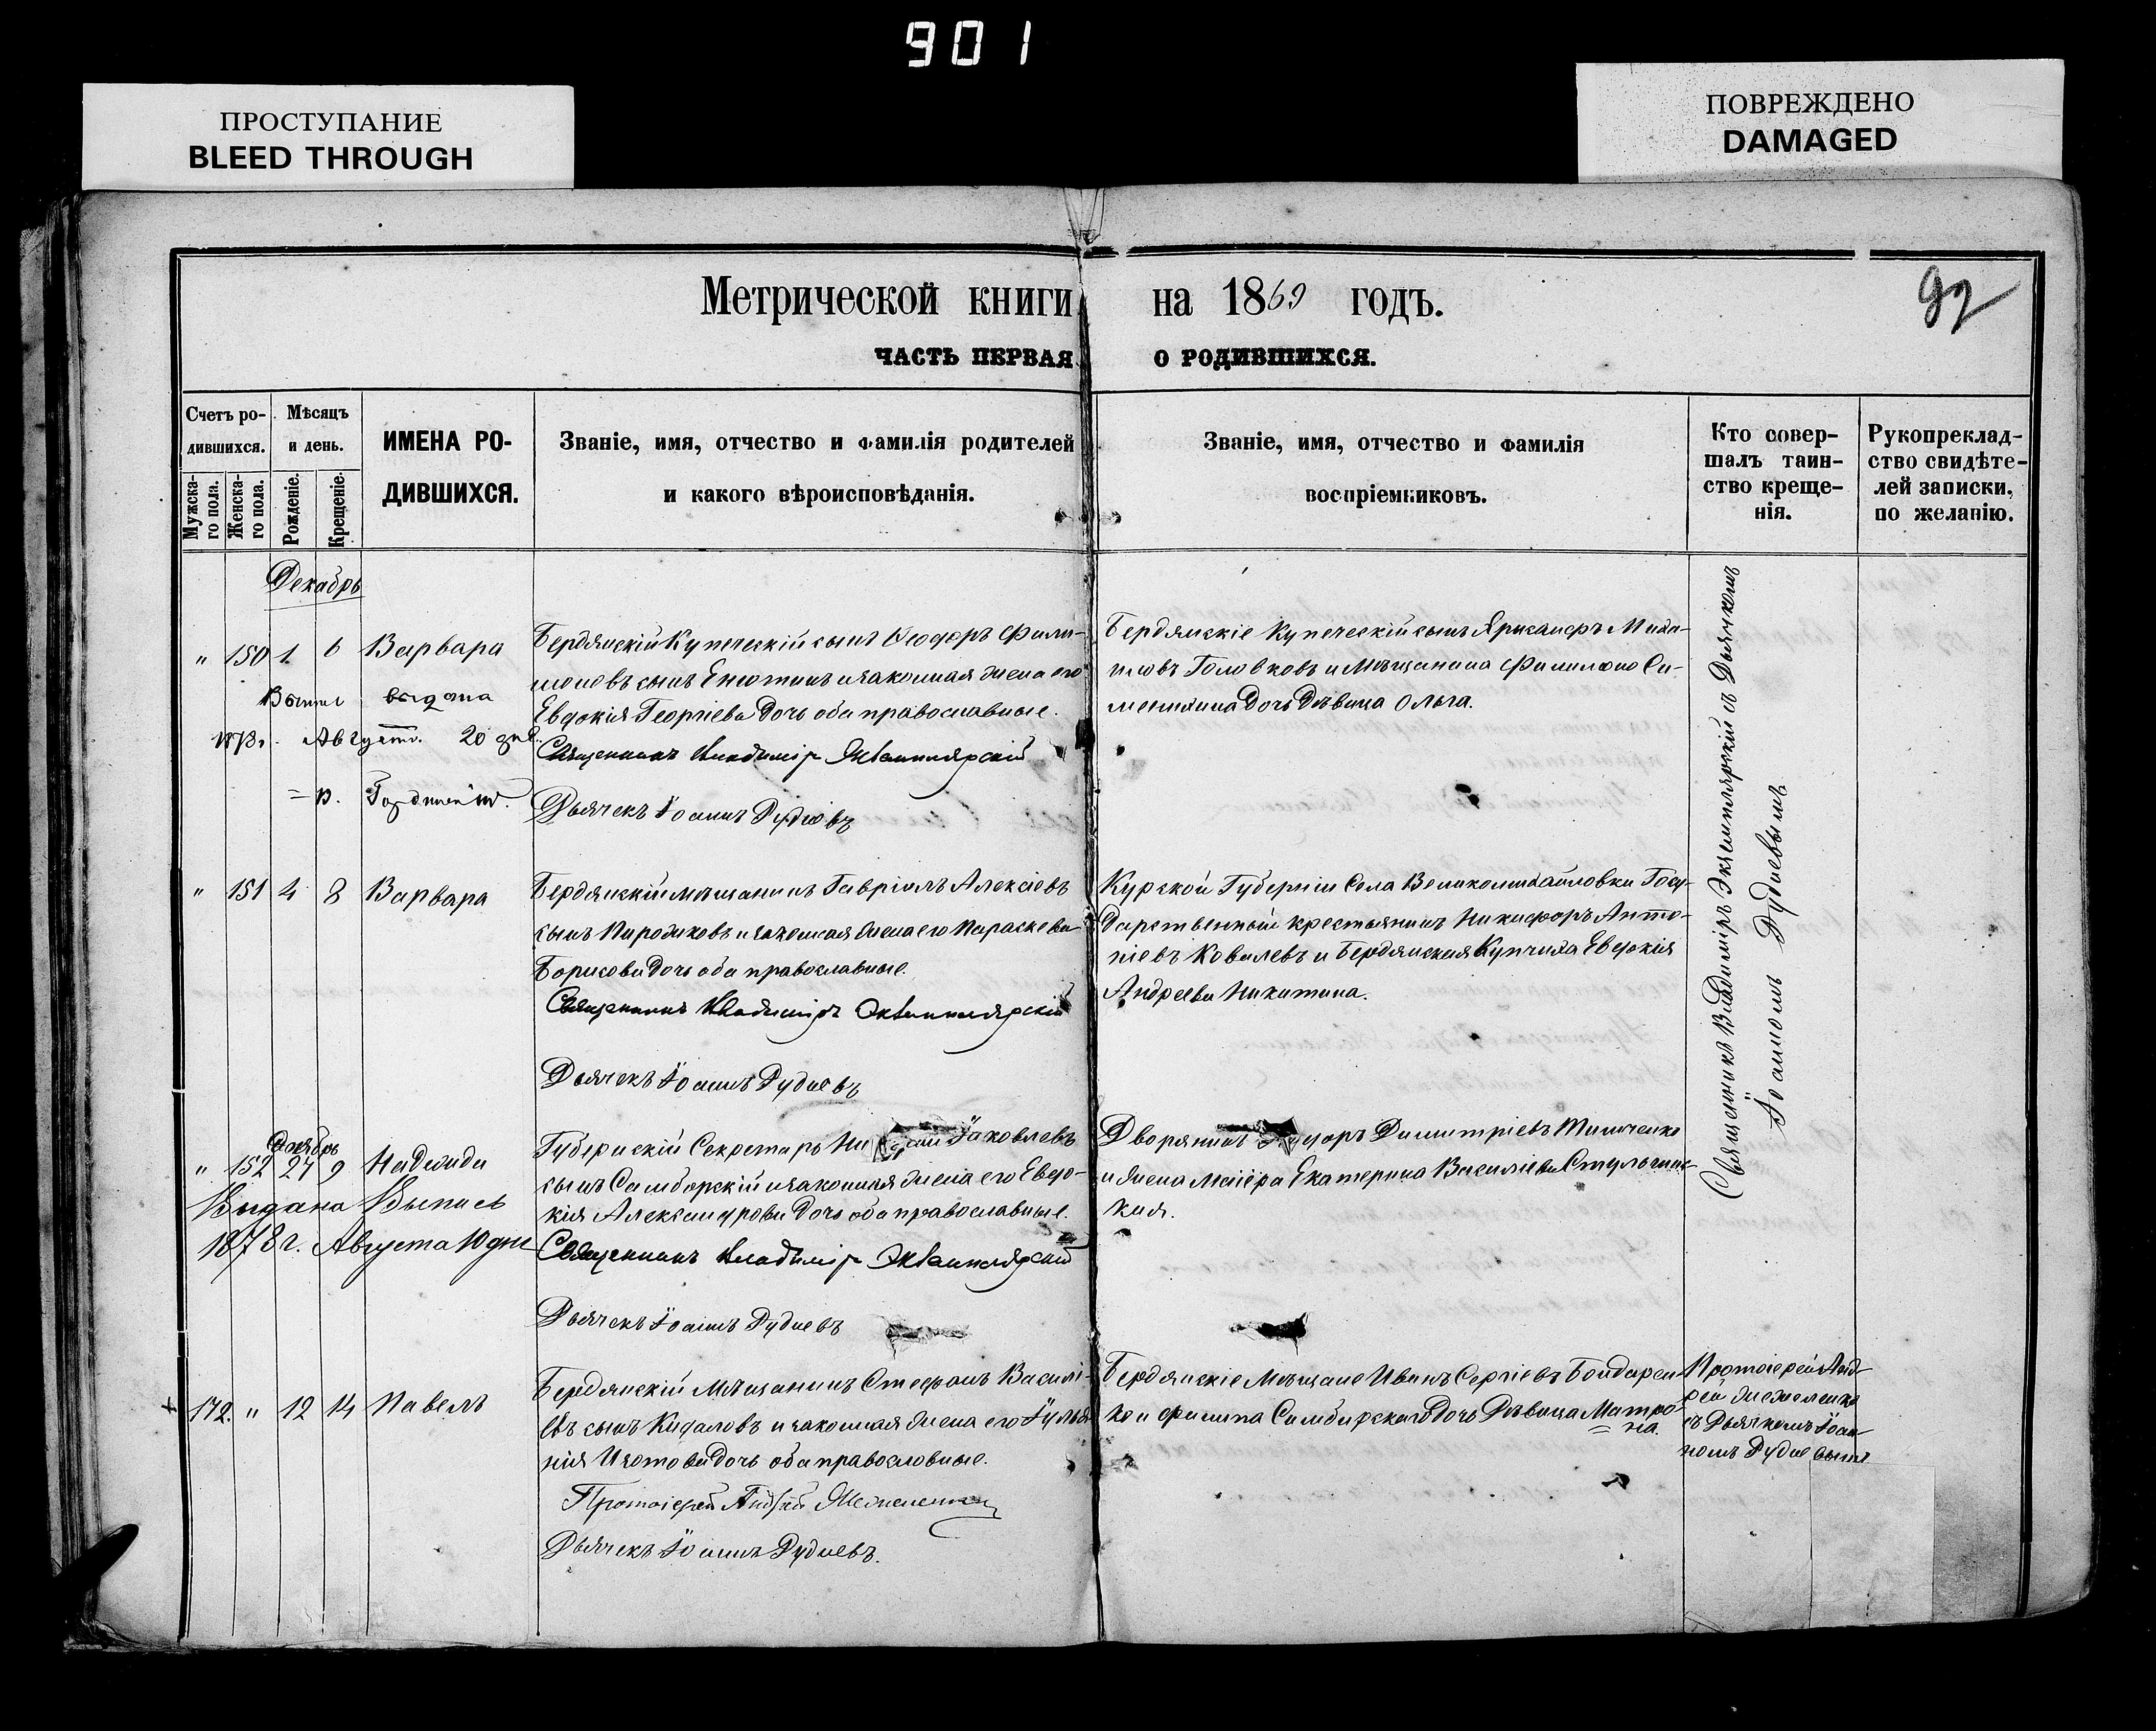 901
ПРОСТУПАНИЕ
BLEED THROUGH
ПОВРЕЖДЕНО
DAMAGED
Метрической книги на 1869 годъ.
92
ЧАСТЬ ПЕРВАЯ О РОДИВШИХСЯ.
Счетъ ро-
дившихся.
Мужска-
го пола.
Женска-
го пола.
Мѣсяцъ
и день.
Рожденіе.
Крещеніе.
ИМЕНА РО-
ДИВШИХСЯ.
Званіе, имя, отчество и фамилія родителей
и какого вѣроисповѣданія.
Званіе, имя, отчество и фамилія
воспріемниковъ.
Кто совер-
шалъ таин-
ство креще-
нія.
Рукоприклад-
ство свидѣте-
лей записки,
по желанію.
Декабрь
" 150 1 6 Варвара
выдана
Август. 20 дн.
Бердянскій Купеческій сынъ Ѳеодоръ Фили-
моновъ сынъ и законная жена его
Евдокія Георгіева дочь оба православные.
Священникъ Владиміръ Экземплярскій
Дьячекъ Іоаннъ Рудневъ
Бердянскіе Купеческій сынъ Миха-
иловъ Головковъ и Мѣщанина Филимона Си-
дочь Дѣвица Ольга.
" 151 4 8 Варвара
Бердянскій мѣщанинъ Гавріилъ Алексіевъ
сынъ Пирожковъ и законная жена его Параскева
Борисова дочь оба православные.
Священникъ Владиміръ Экземплярскій
Дьячекъ Іоаннъ Рудневъ
Курской Губерніи Села Великомихайловки Госу-
дарственный крестьянинъ Никифоръ Анто-
ніевъ Ковалевъ и Бердянская Купчиха Евдокія
Андреева Никитина.
Октябрь
" 152 27 9 Надежда
Выдана Выпись
1878 г. Августа 10 дня
Губернскій Секретарь Іаковлевъ
сынъ Самборскій и законная жена его Евдо-
кія Александрова дочь оба православные.
Священникъ Владиміръ Экземплярскій
Дьячекъ Іоаннъ Рудневъ
Дворянинъ Димитріевъ Тимченко
и жена Маіора Екатерина Василіева Стульчинс-
кая.
Священникъ Владиміръ Экземплярскій съ Дьячкомъ
Іоанномъ Рудневымъ
172. " 12 14 Павелъ
Бердянскій Мѣщанинъ Стефанъ Василі-
евъ сынъ Кидаловъ и законная жена его Іулья-
нія Изотова дочь оба православные.
Протоіерей Андрей Межеленко
Дьячекъ Іоаннъ Рудневъ.
Бердянскіе Мѣщане Иванъ Сергіевъ Бондарен-
ко и Филипа Симбирскаго дочь Дѣвица Матро-
на.
Протоіерей Анд-
рей Межеленко
съ Дьячкомъ Іоан-
номъ Рудневымъ